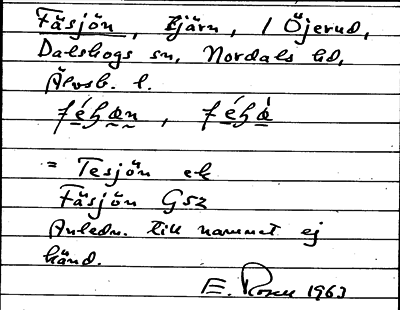 Fäsjön, tjärn, / Öjerud,
Dalskogs sn, Nordals hd,
Älvsb. l.
= Tesjön ek
Fäsjön GSZ
Anledn. till namnet ej
känd.
E. 1963